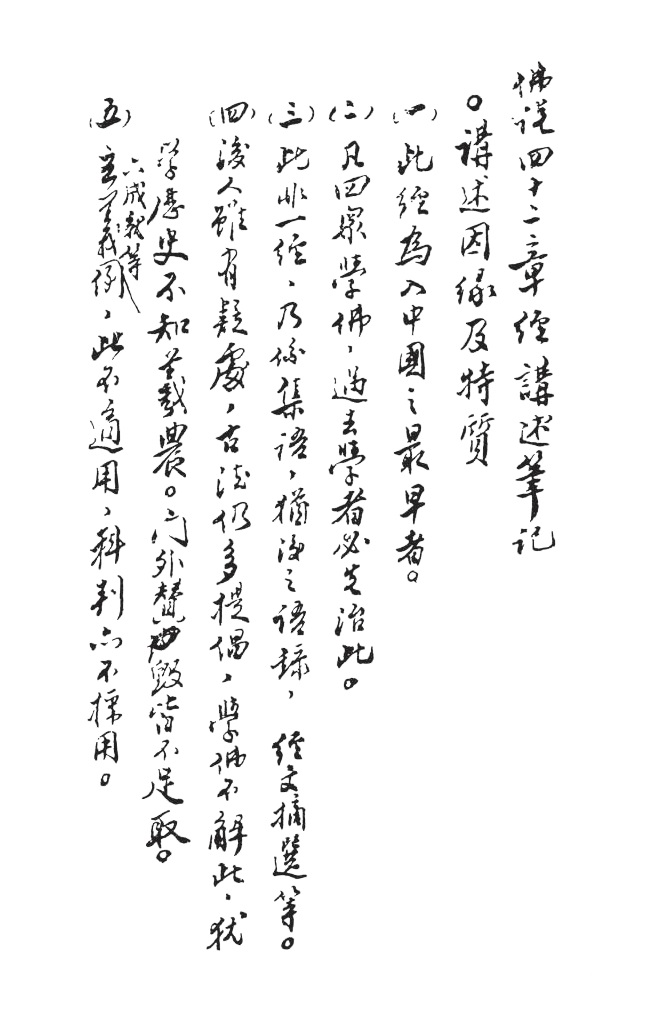 佛說四十二章經講述筆記
。講述因緣及特質
(一)此經為入中國之最早者。
(二)凡四眾學佛，過去學者必先治此。
(三)此非一經，乃係集語，猶後之語錄，經文摘選等。
(四)後人雖有疑處，古德仍多提倡，學佛不解此，猶
學歷史不知羲農。門外贊毀皆不足取。
(五)玄義例，此不適用，科判亦不採用。
六成就等